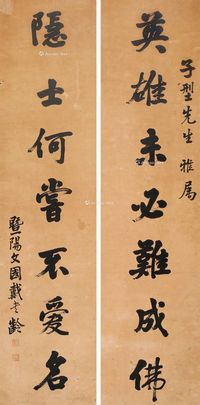 子型先生雅属
英雄未必難成佛
隱士何嘗不愛名
暨陽文國戴其齡